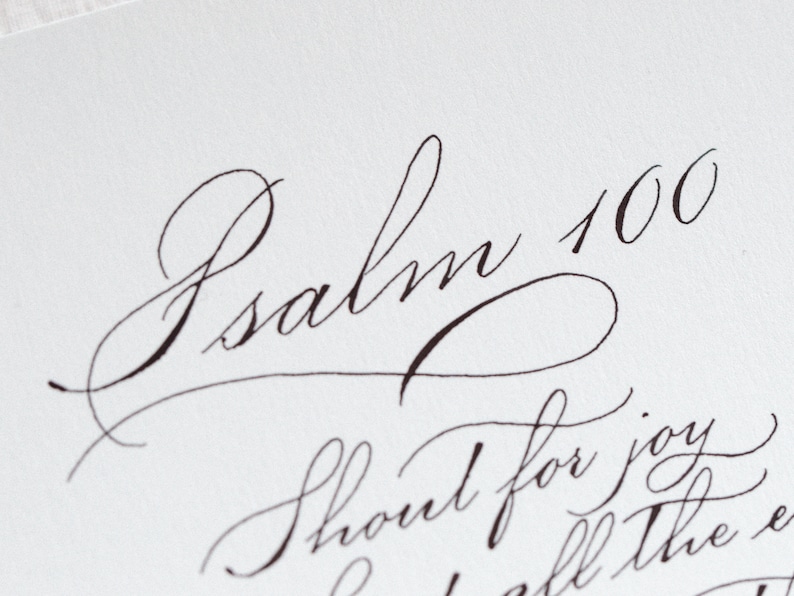 Psalm 100
Shout for joy
all the